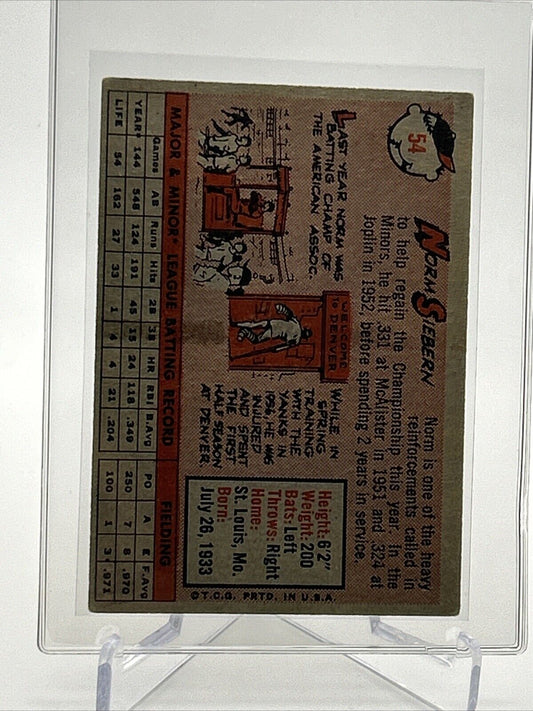 54
NORM SIEBERN
Norm is one of the heavy
reinforcements called in
to help regain the Championship this year. In the
Minors, he hit .331 at McAlister in 1951 and .324 at
Joplin in 1952, before spending 2 years in service.
LAST YEAR NORM WAS
BATTING CHAMP OF
THE AMERICAN ASSOC.
WELCOME
TO DENVER
WHILE IN
SPRING
TRAINING
WITH THE
YANKS IN
1956 HE WAS
INJURED
AND SPENT
THE FIRST
HALF SEASON
AT DENVER.
Height: 6'2"
Weight: 200
Bats: Left
Throws: Right
Home:
St. Louis, Mo.
Born:
July 26, 1933
© T.C.G. PRTD. IN U.S.A.
MAJOR & MINOR* LEAGUE BATTING RECORD FIELDING
Games AB Runs Hits 2B 3B HR RBI B.Avg PO A E F.Avg
YEAR* 144 545 124 191 45 15 24 118 .349 250 7 8 .970
LIFE 54 162 27 33 1 4 4 21 .204 100 1 3 .971